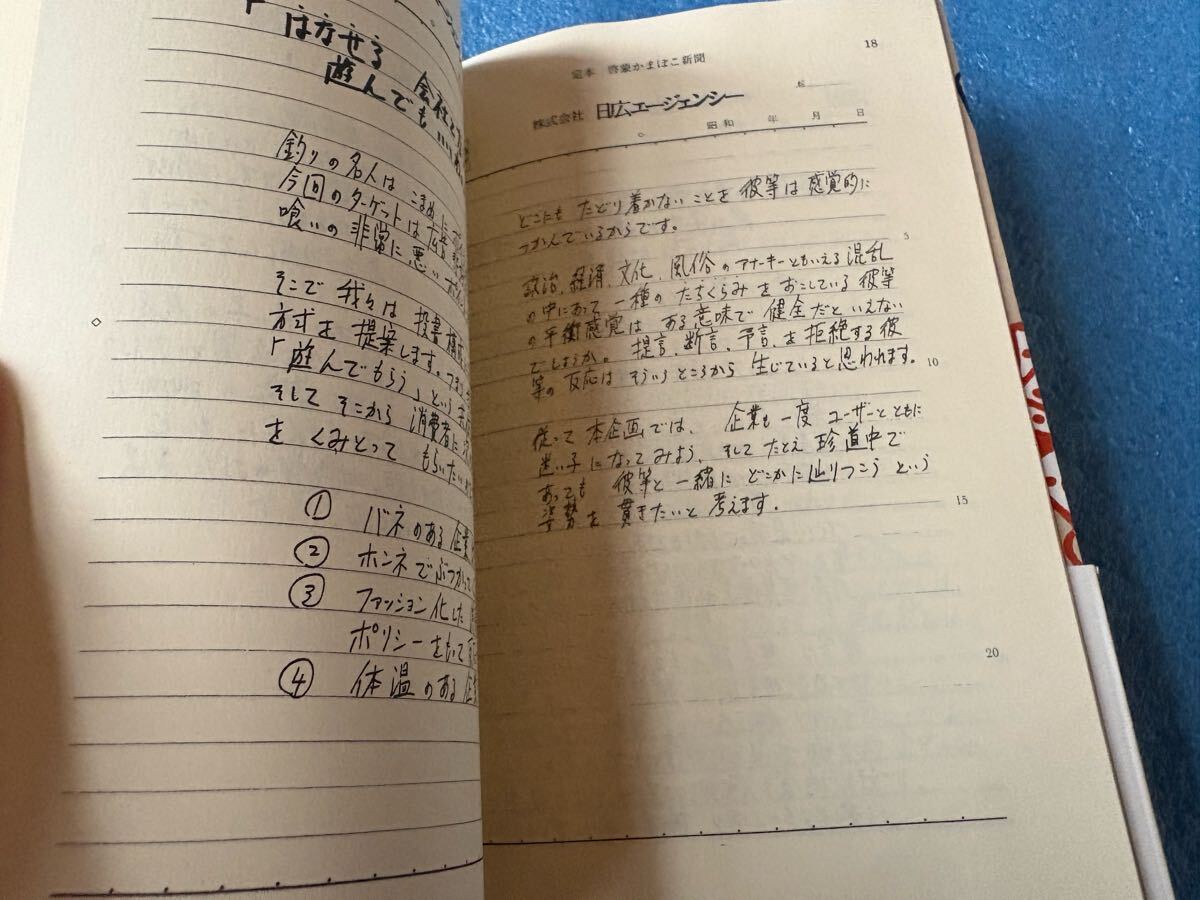 「はなせる会社と
遊んでも……
釣りの名人は こまめに
今回のターゲットは広告
喰いの非常に悪い
そこで 我々は 投書
方式を 提案します。つま
「遊んでもらう」という
そして そこから 消費者に
を くみとって もらいたい
① バネのある企業
② ホンネでぶつかって
③ ファッション化した
ポリシーをもって
④ 体温のある企
18
定本 啓蒙かまぼこ新聞
株式会社 日広エージェンシー
昭和 年 月 日
どこにも たどり着かないことを 彼等は 感覚的に
つかんでいるからです。
5
政治、経済、文化、風俗のアナーキーともいえる混乱
の中にあって 一種の たちくらみ を おこしている 彼等
の平衡感覚は ある意味で 健全だといえない
でしょうか。 提言、断言、予言、を 拒絶する彼
等の 反応は そういうところから 生じていると思われます。
10
従って 本企画では、 企業も 一度 ユーザーとともに
迷い子になってみよう、そして たとえ 珍道中で
あっても 彼等と 一緒に どこかに 辿りつこう という
姿勢を 貫きたいと 考えます。
15
20